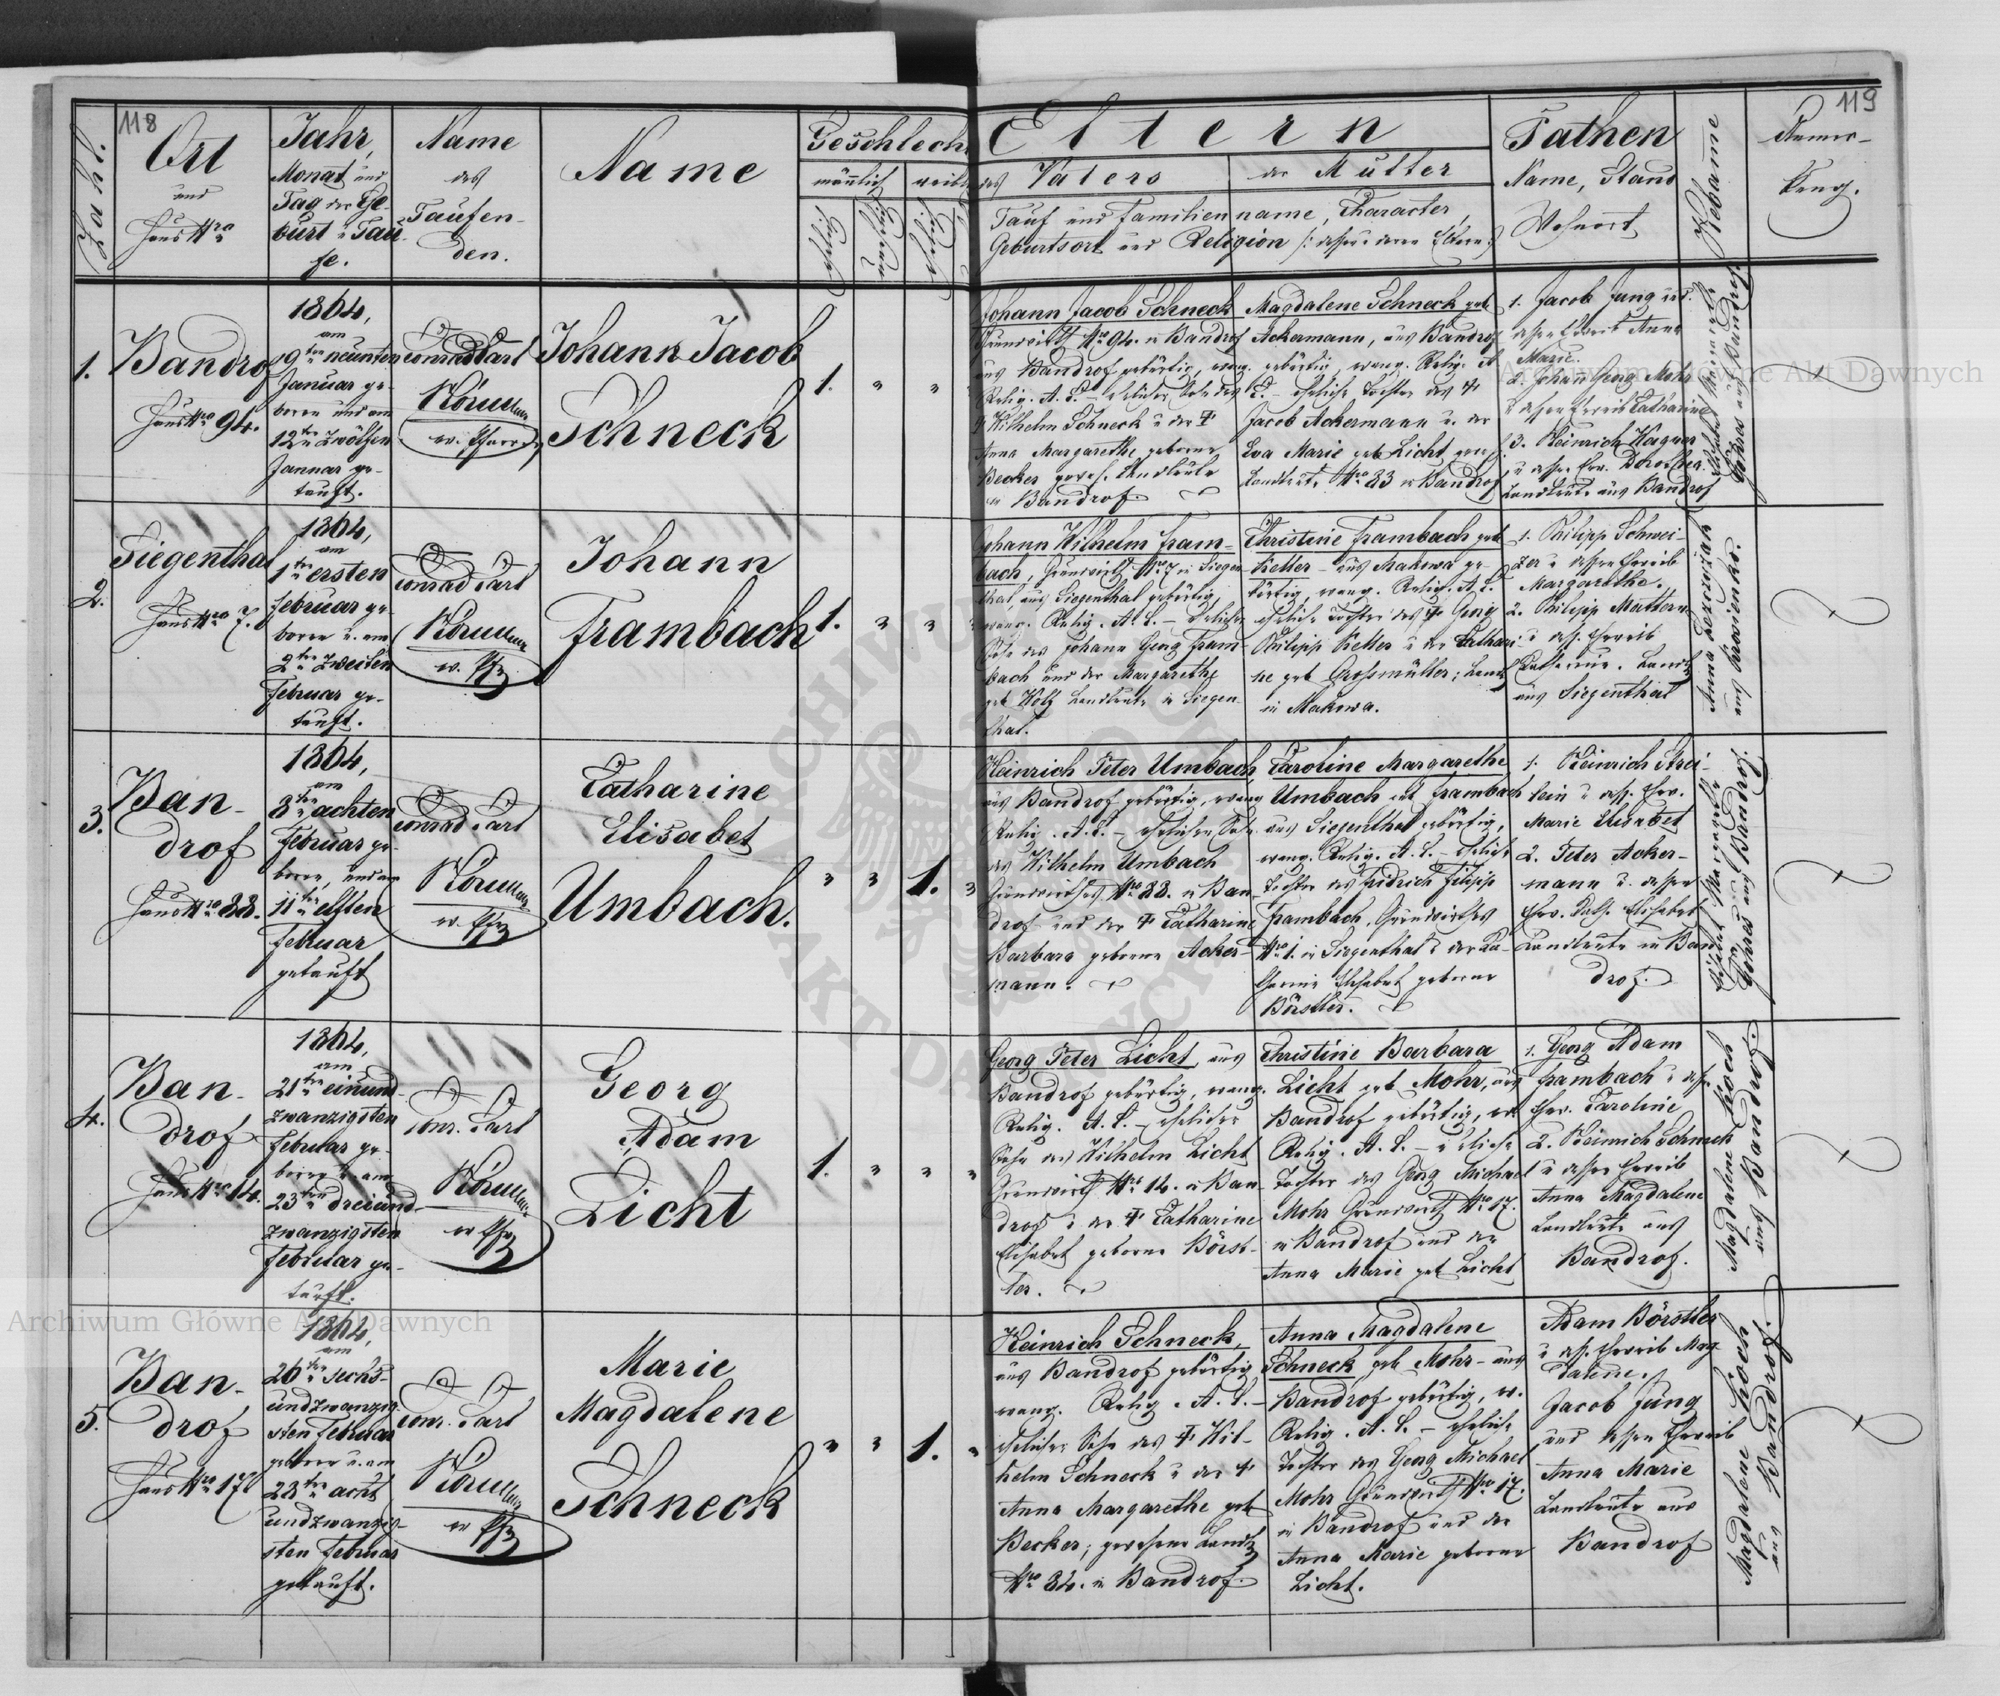 118
119
Zahl.
Ort
und
Haus Nro
Jahr,
Monat und
Tag der Ge-
burt u Tau
fe.
Name
des
Taufen-
den.
Name
Geschlecht
männlich
weibl
Eltern
des Vaters
der Mutter
Tauf und Familienname, Character,
Geburtsort und Religion
Pathen
Name, Stand
Wohnort
Hebamme
Anmer-
kung.
1.
Bandrof
Haus Nro 94.
1864,
am
9ten neunten
Januar ge-
boren und am
12ten zwölften
Januar ge-
tauft.
Conrad Carl
ev. Pfarrer
Johann Jacob
Schneck
1. " " "
Johann Jacob Schneck
Grundwirth Nro 94. in Bandrof
aus Bandrof gebürtig, evang.
Relig. A. C. – ehelicher Sohn des
† Wilhelm Schneck u der †
Anna Margarethe geborne
Becker gewes. Landleute
in Bandrof.
Magdalene Schneck geb
Ackermann, aus Bandrof
gebürtig, evang. Relig. A
C. – eheliche Tochter des †
Jacob Ackermann u. der
Eva Marie geb Licht
Landleute Nro 83 in Bandrof
1. Jacob Jung und
dessen Eheweib Anna
Marie.
2. Johan Georg Mohr
u dessen Eheweib Catharine
3. Heinrich Wagner
u dessen Ehw. Dorothea.
Landleute aus Bandrof
Elisabet Margarethe
Göhres aus Bandrof.
2.
Siegenthal
Haus Nro 7.
1864,
am
1ten ersten
Februar ge-
boren u. am
2ten zweiten
Februar ge-
tauft.
Conrad Carl
ev. Pfr
Johann
Frambach
1. " " "
Johann Wilhelm Fram-
bach, Grundwirth Nro 7 in Siegen
thal, aus Siegenthal gebürtig,
evang. Relig. A. C. – ehelicher
Sohn des Johann Georg Fram-
bach und der Margarethe
geb Wolf Landleute in Siegen-
thal.
Christine Frambach geb
Keller – aus Makowa ge-
bürtig, evang. Relig. A. C.
eheliche Tochter des † Georg
Philipp Keller u der Cathari-
ne geb Grossmüller; Landl
in Makowa.
1. Philipp Schwei-
zer u dessen Eheweib
Margarethe.
2. Philipp Mattern
u dess. Eheweib
Catharine. Landl
aus Siegenthal
3.
Ban-
drof
Haus Nro 88.
1864,
am
8ten achten
Februar ge-
boren, und am
11ten elften
Februar
getauft
Conrad Carl
ev. Pfr
Catharine
Elisabet
Umbach.
" " 1. "
Heinrich Peter Umbach
aus Bandrof gebürtig, evang
Relig. A. C. – ehelicher Sohn
des Wilhelm Umbach
Grundwirthes Nro 88. in Ban-
drof und der † Catharine
Barbara geborne Acker-
mann.
Caroline Margarethe
Umbach geb Frambach
aus Siegenthal gebürtig,
evang. Relig. A. C. – eheliche
Tochter des Fridrich Filipp
Frambach, Grundwirthes
Nro 1. in Siegenthal u der Ca-
tharine Elisabet geborne
Börstler.
1. Heinrich Arei-
lein u dess. Ehw.
Marie Elisabet
2. Peter Acker-
mann u. dessen
Ehw. Cath. Elisabet
Landleute in Ban
drof.
Elisabet Margarethe
Göhres aus Bandrof.
4.
Ban-
drof
Haus Nro 14.
1864,
am
21ten einund-
zwanzigsten
Februar ge-
boren u. am
23ten dreiund-
zwanzigsten
Februar ge-
tauft.
Conr. Carl
ev Pfr
Georg
Adam
Licht
1. " " "
Georg Peter Licht, aus
Bandrof gebürtig, evang.
Relig. A. C. – ehelicher
Sohn des Wilhelm Licht
Grundwirth Nro 14. in Ban-
drof u der † Catharine
Elisabet geborne Börst-
ler.
Christine Barbara
Licht geb Mohr, aus
Bandrof gebürtig, ev.
Relig. A. C. – eheliche
Tochter des Georg Michael
Mohr Grundwirth Nro 17.
in Bandrof und der
Anna Marie geb Licht
1. Georg Adam
Frambach u dess
Ehw. Caroline
2. Heinrich Schneck
u dessen Eheweib
Anna Magdalene
Landleute aus
Bandrof.
Magdalene Koch
aus Bandrof.
5.
Ban-
drof
Haus Nro 17
1864,
am
26ten sechs-
undzwanzig-
sten Februar
geboren u. am
28ten acht
undzwanzig-
sten Februar
getauft.
Conr. Carl
ev Pfr
Marie
Magdalene
Schneck
" " 1. "
Heinrich Schneck,
aus Bandrof gebürtig
evang. Relig. A. C. –
ehelicher Sohn des † Wil-
helm Schneck u der †
Anna Margarethe geb
Becker; gewesene Landl
Nro 34. in Bandrof.
Anna Magdalene
Schneck, geb Mohr – aus
Bandrof gebürtig, ev.
Relig. A. C. – eheliche
Tochter des Georg Michael
Mohr Grundwirth Nro 17.
in Bandrof und der
Anna Marie geborne
Licht.
Adam Börstler
u dess. Eheweib Mag-
dalene.
Jacob Jung
und dessen Eheweib
Anna Marie
Landleute aus
Bandrof
Magdalene Koch
aus Bandrof.
Archiwum Główne Akt Dawnych
Archiwum Główne Akt Dawnych